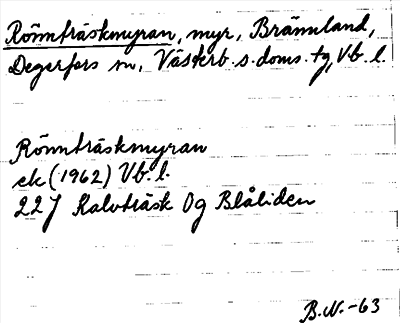 Rönnträskmyran, myr, Brännland,
Degerfors sn, Västerb. s. doms. tg, Vb. l.
Rönnträskmyran
ek (1962) Vb. l.
22J Kalvträsk 0g Blåliden
B.N.-63